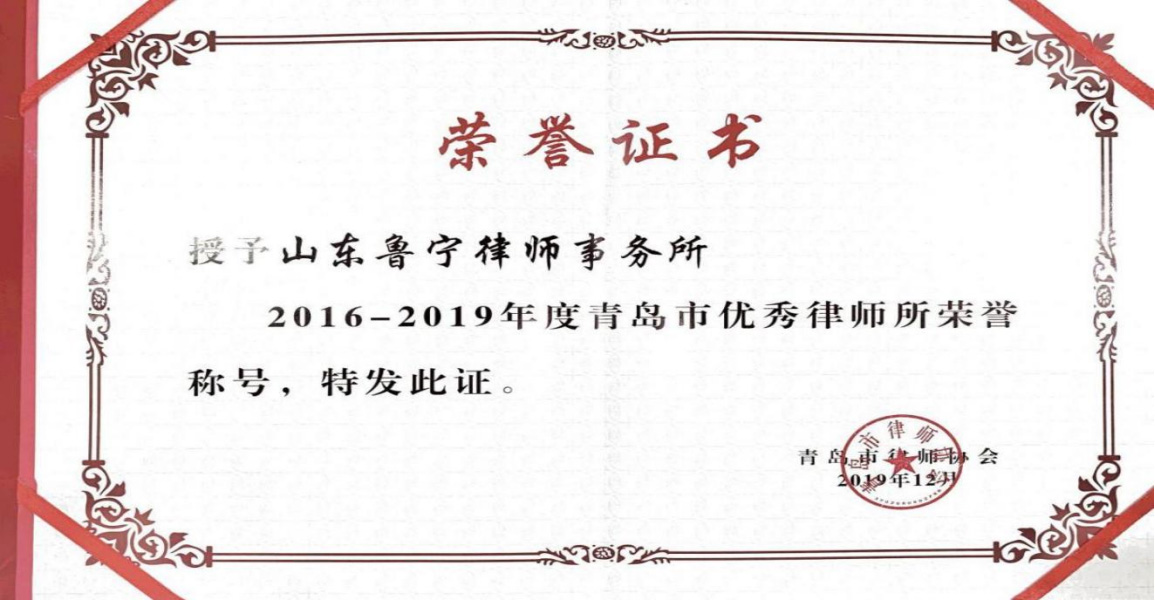 荣誉证书
授予山东鲁宁律师事务所
2016-2019年度青岛市优秀律师所荣誉
称号，特发此证。
青岛市律师协会
2019年12月
青岛市律师协会